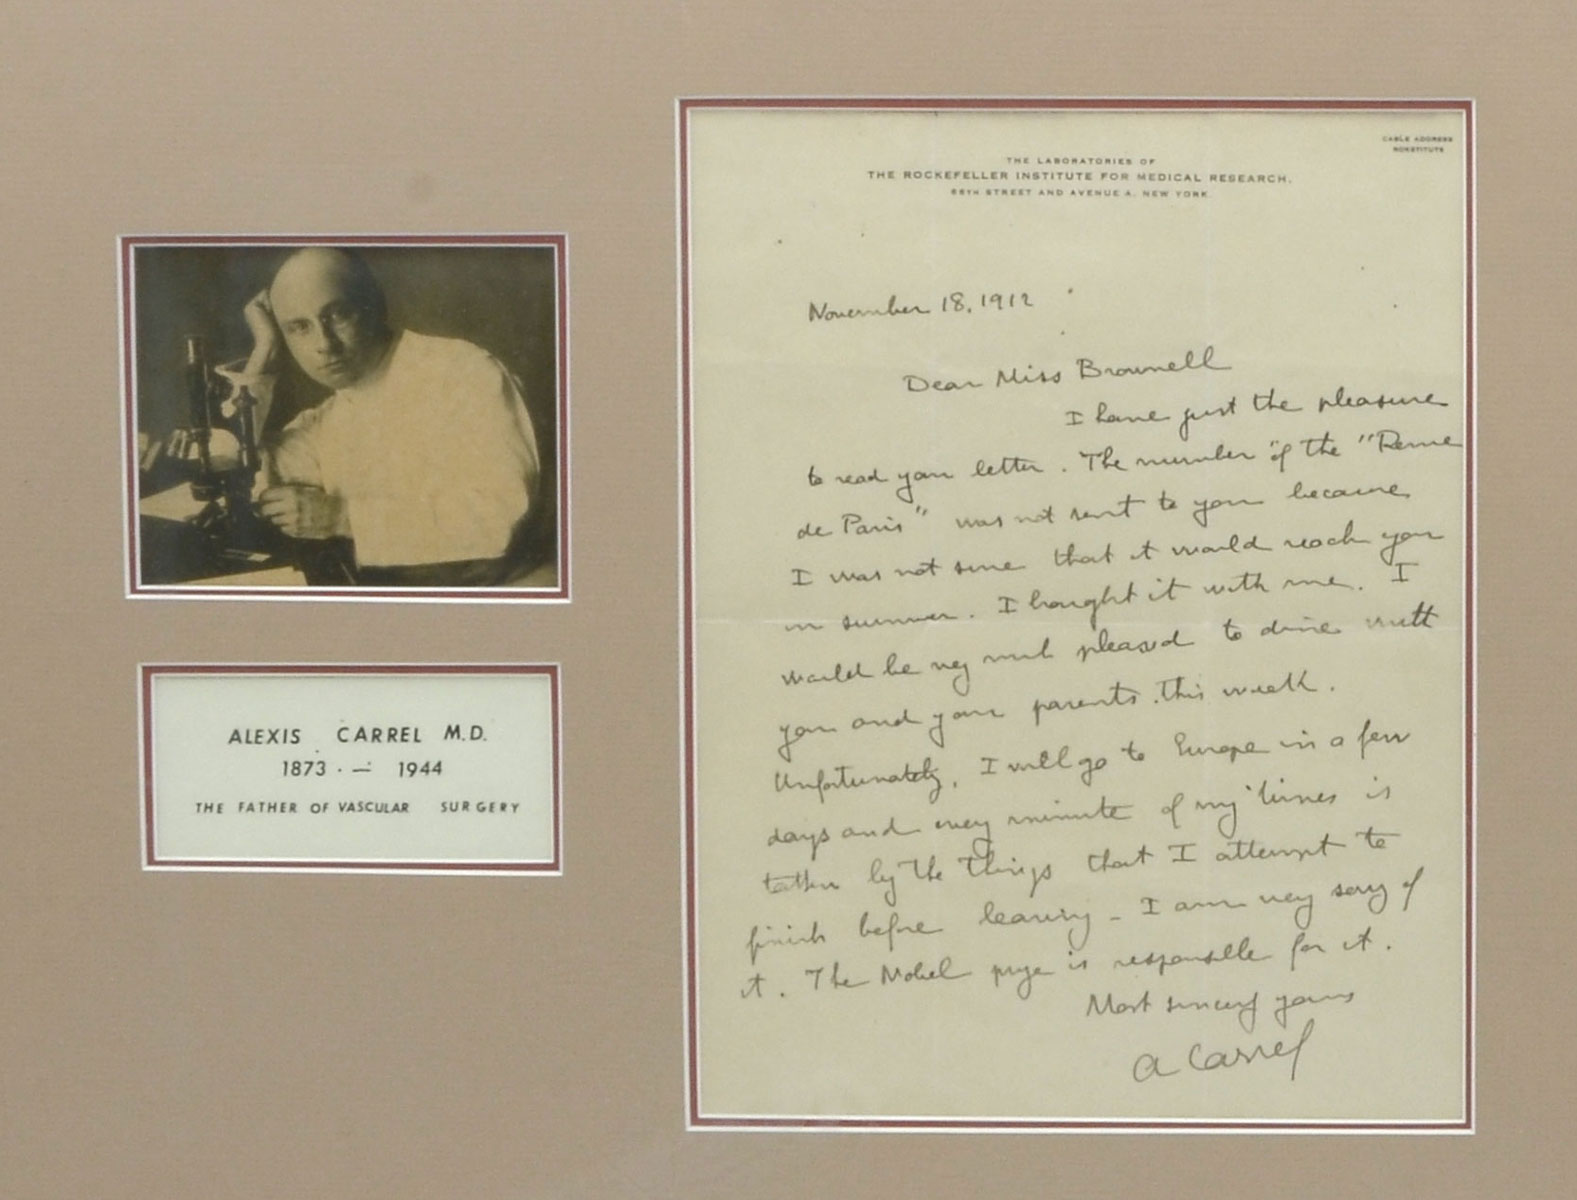 CABLE ADDRESS
ROKSTITUTE
THE LABORATORIES OF
THE ROCKEFELLER INSTITUTE FOR MEDICAL RESEARCH,
66TH STREET AND AVENUE A, NEW YORK.
November 18, 1912
Dear Miss Brownell
I have just the pleasure
to read your letter. The number of the "Revue
de Paris" was not sent to you because
I was not sure that it would reach you
in summer. I brought it with me. I
would be very much pleased to dine with
you and your parents this week.
Unfortunately, I will go to Europe in a few
days and every minute of my times is
taken by the things that I attempt to
finish before leaving - I am very sorry of
it. The Nobel prize is responsible for it.
Most sincerely yours
A Carrel
ALEXIS CARREL M.D.
1873 - 1944
THE FATHER OF VASCULAR SURGERY